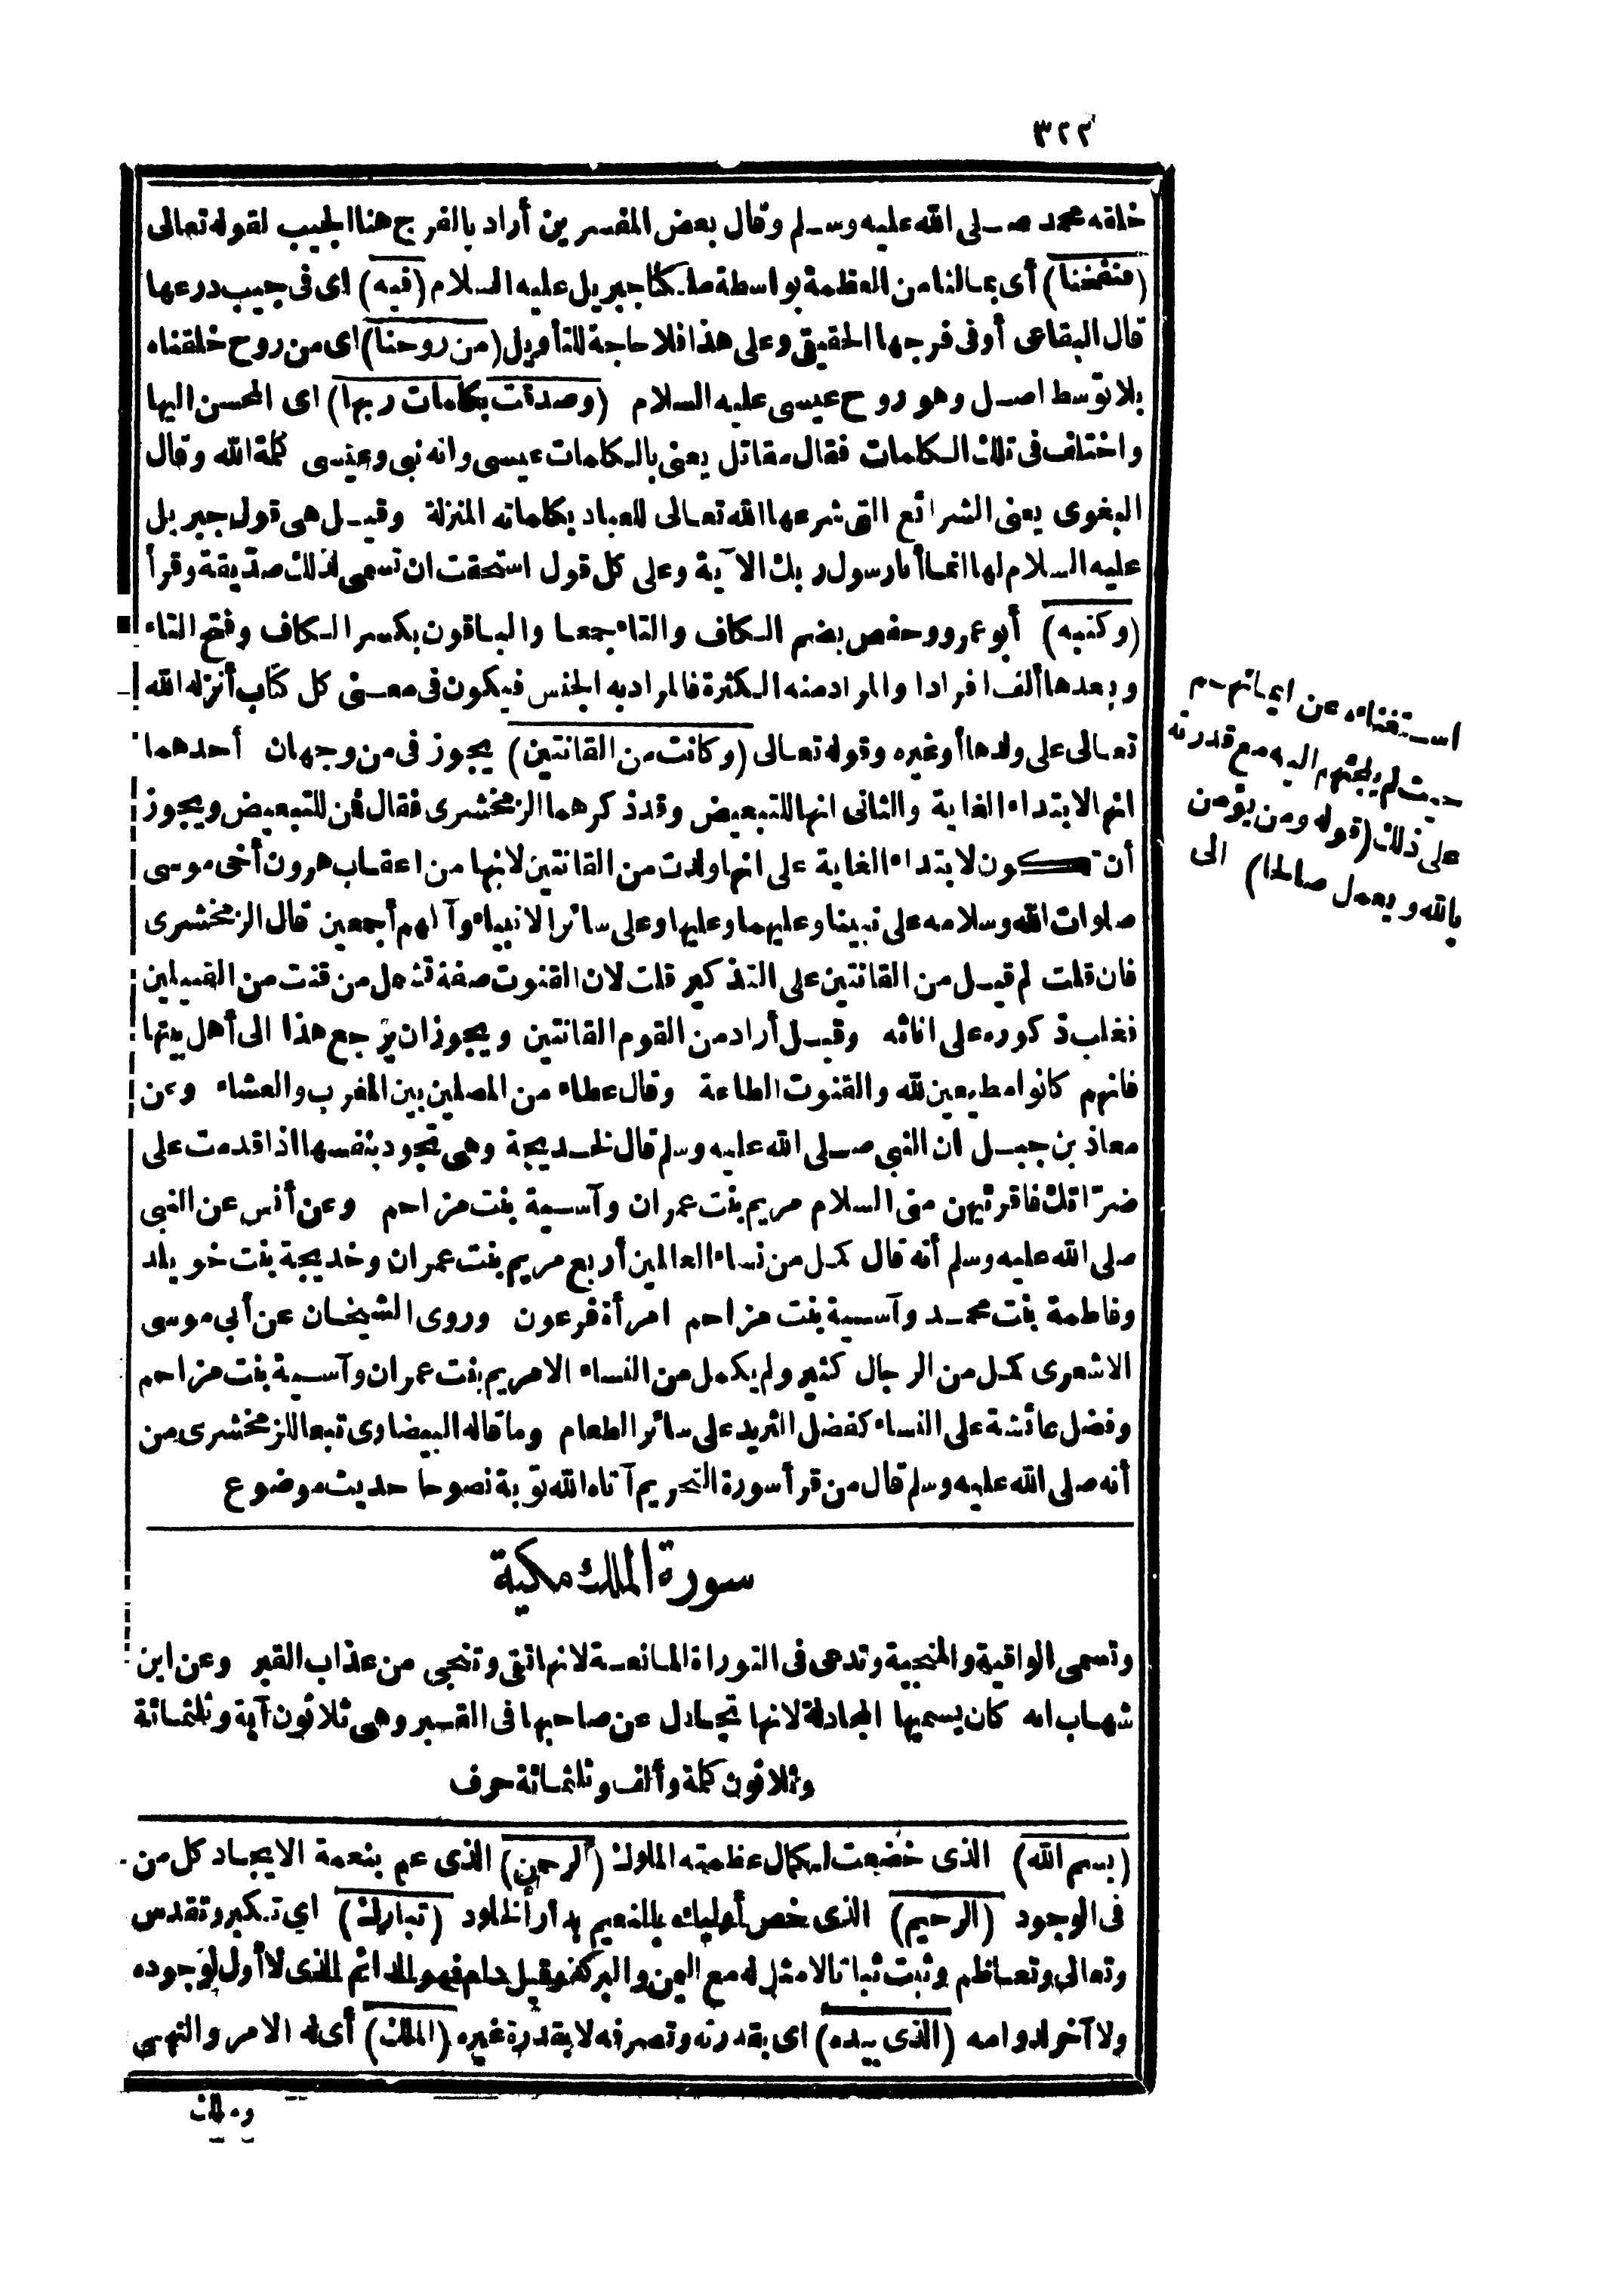 ٣٢٢
خلقه محمد صلى الله عليه وسلم وقال بعض المفسرين أراد بالفرج هنا الجيب لقوله تعالى
(فنفخنا) أى بمالنا من العظمة بواسطة ملكنا جبريل عليه السلام (فيه) اى فى جيب درعها
قال البقاعى أو فى فرجها الحقيقى وعلى هذا فلا حاجة للتأويل (من روحنا) اى من روح خلقناه
بلا توسط اصل وهو روح عيسى عليه السلام (وصدقت بكلمات ربها) اى المحسن اليها
واختلف فى تلك الكلمات فقال مقاتل يعنى بالكلمات عيسى وانه نبى وعيسى كلمة الله وقال
البغوى يعنى الشرائع التى شرعها الله تعالى للعباد بكلماته المنزلة وقيل هى قول جبريل
عليه السلام لها انما أنا رسول ربك الآية وعلى كل قول استحقت ان تسمى لذلك صديقة وقرأ
(وكتبه) أبو عمرو وحفص بضم الكاف والتاء جمعا والباقون بكسر الكاف وفتح التاء
وبعدها ألف افرادا والمراد منه الكثرة فالمراد به الجنس فيكون فى معنى كل كتاب أنزله الله
تعالى على ولدها أو غيره وقوله تعالى (وكانت من القانتين) يجوز فى من وجهان أحدهما
انها لابتداء الغاية والثانى انها للتبعيض وقد ذكرهما الزمخشرى فقال فمن للتبعيض ويجوز
أن تكون لابتداء الغاية على انها ولدت من القانتين لانها من اعقاب هرون أخى موسى
صلوات الله وسلامه على نبينا وعليهما وعليها وعلى سائر الانبياء وآلهم أجمعين قال الزمخشرى
فان قلت لم قيل من القانتين على التذكير قلت لان القنوت صفة تشمل من قنت من القبيلين
فغلب ذكوره على اناثه وقيل أراد من القوم القانتين ويجوز ان يرجع هذا الى أهل بيتها
فانهم كانوا مطيعين لله والقنوت الطاعة وقال عطاء من المصلين بين المغرب والعشاء وعن
معاذ بن جبل ان النبى صلى الله عليه وسلم قال لخديجة وهى تجود بنفسها اذا قدمت على
ضراتك فاقرئيهن منى السلام مريم بنت عمران وآسية بنت مزاحم وعن أنس عن النبى
صلى الله عليه وسلم أنه قال كمل من نساء العالمين أربع مريم بنت عمران وخديجة بنت خويلد
وفاطمة بنت محمد وآسية بنت مزاحم امرأة فرعون وروى الشيخان عن أبي موسى
الاشعرى كمل من الرجال كثير ولم يكمل من النساء الا مريم بنت عمران وآسية بنت مزاحم
وفضل عائشة على النساء كفضل الثريد على سائر الطعام وما قاله البيضاوى تبعا للزمخشرى من
أنه صلى الله عليه وسلم قال من قرأ سورة التحريم آتاه الله توبة نصوحا حديث موضوع
سورة الملك مكية
وتسمى الواقية والمنجية وتدعى فى التوراة المانعة لانها تقى وتنجى من عذاب القبر وعن ابن
شهاب انه كان يسميها المجادلة لانها تجادل عن صاحبها فى القبر وهى ثلاثون آية وثلثمائة
وثلاثون كلمة وألف وثلثمائة حرف
(بسم الله) الذى خضعت لكمال عظمته الملوك (الرحمن) الذى عم بنعمة الايجاد كل من
فى الوجود (الرحيم) الذى خص أولياءه بالنعيم بدار الخلود (تبارك) اي تكبر وتقدس
وتعالى وتعاظم وثبت ثباتا لا مثل له مع اليمن والبركة وقيل دام فهو الدائم الذى لا أول لوجوده
ولا آخر لدوامه (الذى بيده) اى بقدرته وتصرفه لا بقدرة غيره (الملك) أى له الامر والنهى
وملك
استغناءه عن ايمانهم
حيث لم يلجئهم اليه مع قدرته
على ذلك (قوله ومن يؤمن
بالله ويعمل صالحا) الى